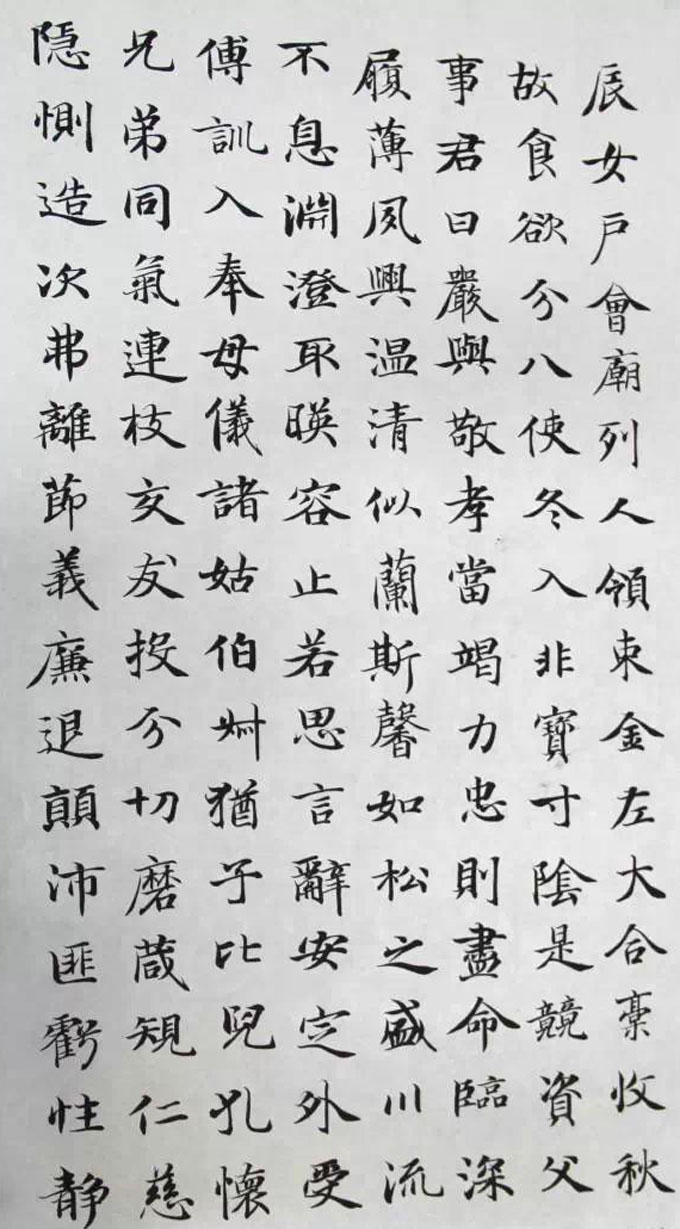 辰女戶會廟列人領束金左大合稾收秋
故食欲分八使冬入非寶寸陰是競資父
事君曰嚴與敬孝當竭力忠則盡命臨深
履薄夙興温清似蘭斯馨如松之盛川流
不息淵澄取暎容止若思言辭安定外受
傅訓入奉母儀諸姑伯叔猶子比兒孔懷
兄弟同氣連枝交友投分切磨箴規仁慈
隱惻造次弗離節義廉退顛沛匪虧性静